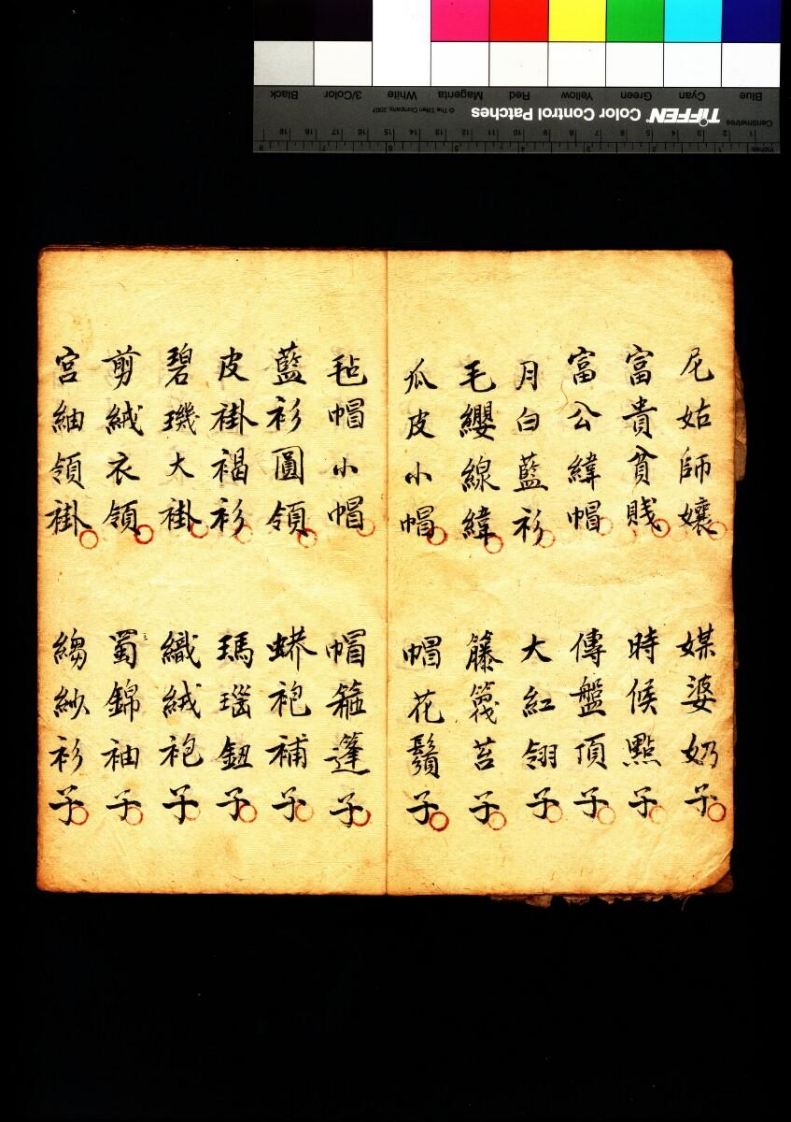 尼姑師孃
媒婆奶子
富貴貧賤
時候點子
富公緯帽
傳盤頂子
月白藍衫
大紅翎子
毛纓線緯
籐篾苔子
瓜皮小帽
帽花鬚子
毡帽小帽
帽箍篷子
藍衫圓領
蟒袍補子
皮褂褐衫
瑪瑙鈕子
碧璣大褂
織絨袍子
剪絨衣領
蜀錦袖子
宮紬領褂
縐紗衫子
TIFFEN Color Control Patches
© The Tiffen Company, 2007
Blue Cyan Green Yellow Red Magenta White 3/Color Black
Centimetres
Inches